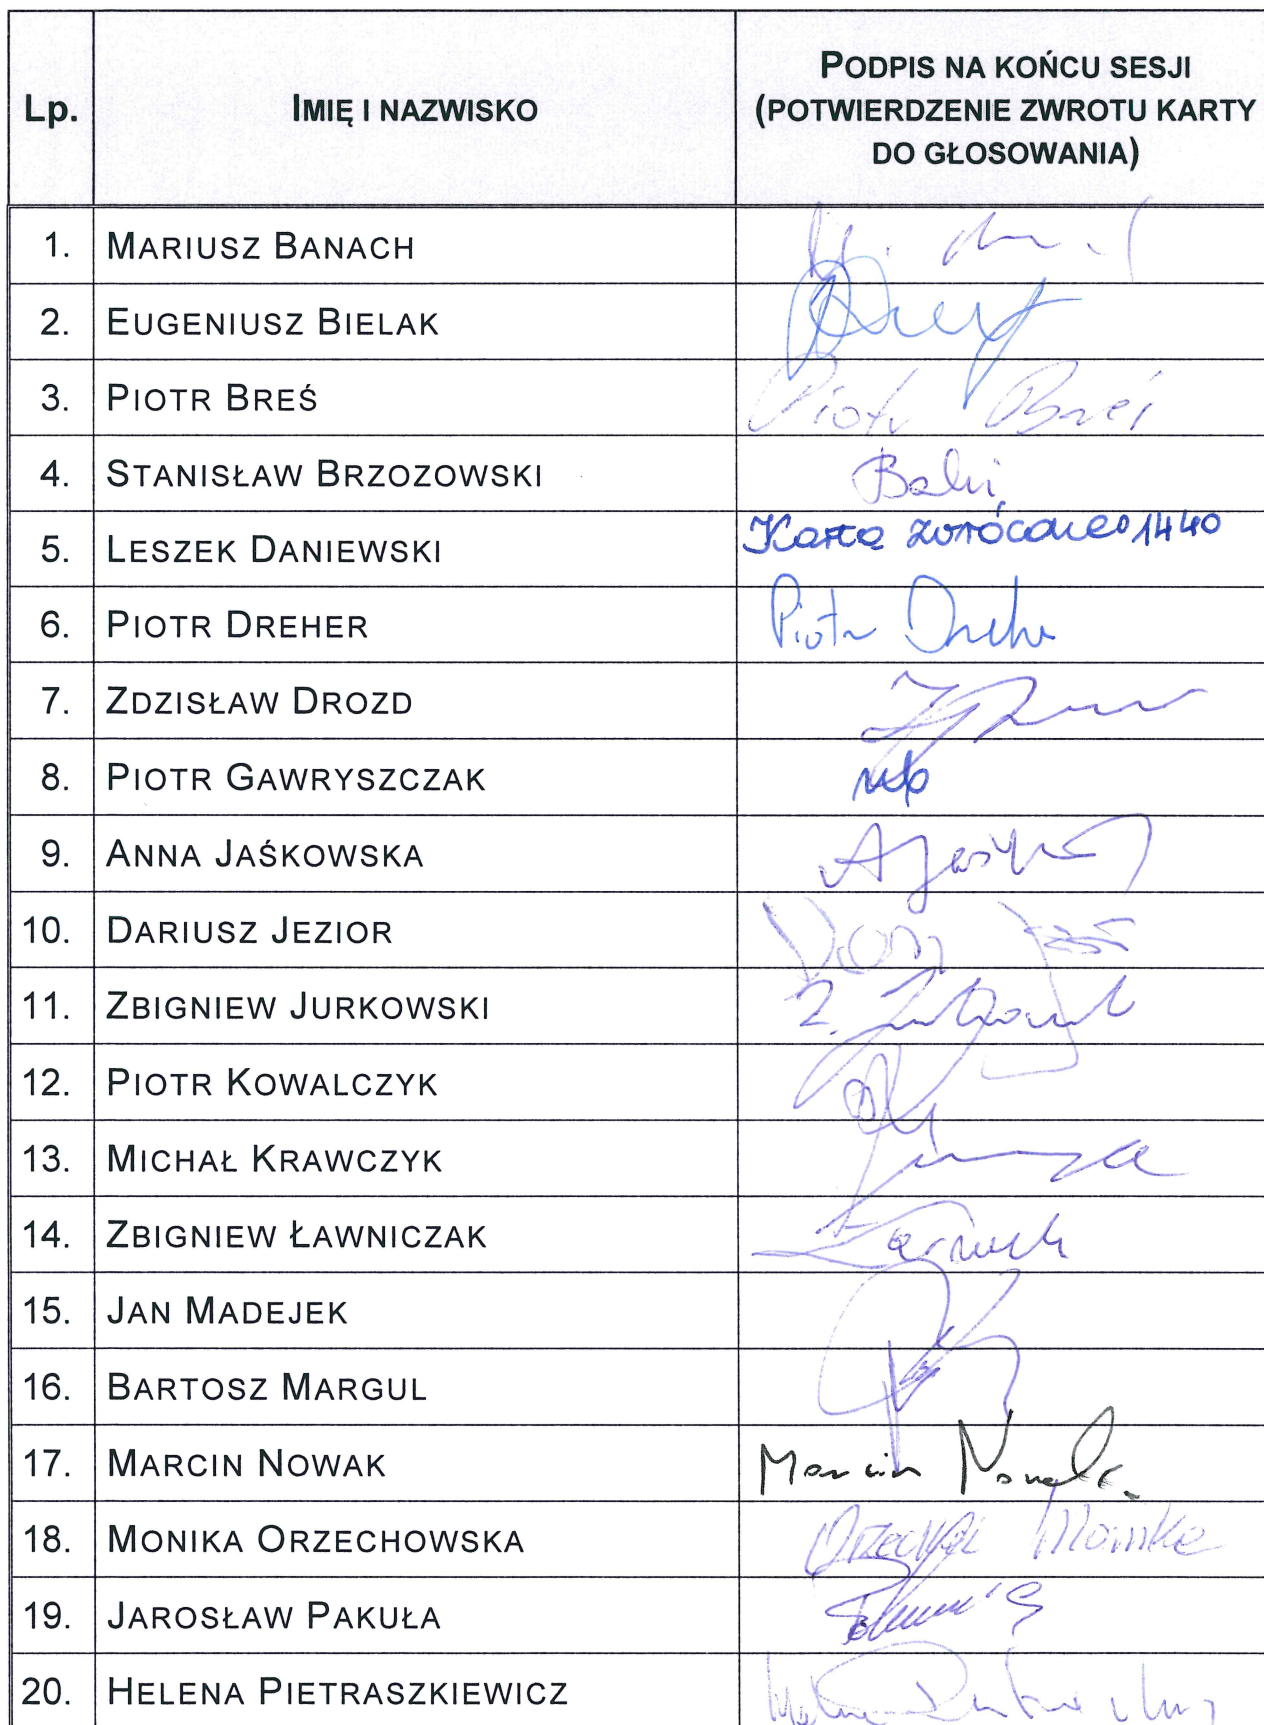 Lp. IMIĘ I NAZWISKO PODPIS NA KOŃCU SESJI
(POTWIERDZENIE ZWROTU KARTY
DO GŁOSOWANIA)
1. MARIUSZ BANACH
2. EUGENIUSZ BIELAK
3. PIOTR BREŚ Piotr Breś
4. STANISŁAW BRZOZOWSKI
5. LESZEK DANIEWSKI Karta zwrócona 1440
6. PIOTR DREHER Piotr Dreher
7. ZDZISŁAW DROZD
8. PIOTR GAWRYSZCZAK
9. ANNA JAŚKOWSKA
10. DARIUSZ JEZIOR
11. ZBIGNIEW JURKOWSKI
12. PIOTR KOWALCZYK
13. MICHAŁ KRAWCZYK
14. ZBIGNIEW ŁAWNICZAK
15. JAN MADEJEK
16. BARTOSZ MARGUL
17. MARCIN NOWAK Marcin Nowak
18. MONIKA ORZECHOWSKA Monika
19. JAROSŁAW PAKUŁA
20. HELENA PIETRASZKIEWICZ